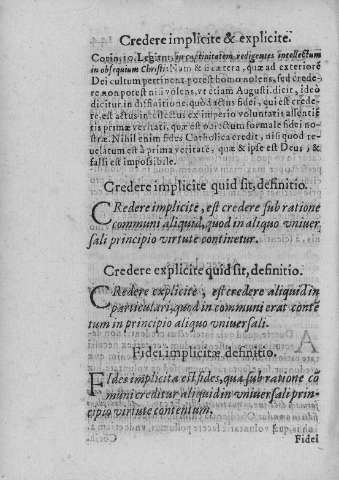 Credere implicite & explicite.
Corinto. Legimus in captiuitatem redigentes intellectum
in obsequium Christi: Nam & cætera, quæ ad exteriorẽ
Dei cultum pertinent potest homo nolens, sed crede-
re non potest ni volens, vt etiam August. dicit, ideò
dicitur in diffinitione, quòd actus fidei, qui est crede-
re, est actus intellectus ex imperio voluntatis assentiẽ
tis primæ veritati, quæ est obiectum formale fidei no-
stræ. Nihil enim fides Catholica credit, nisi quod re-
uelatum est à prima veritate, quæ & ipse est Deus, &
falli est impossibile.
Credere implicite quid sit, definitio.
CRedere implicite, est credere sub ratione
communi aliquid, quod in aliquo vniuer
sali principio virtute continetur.
Credere explicite quid sit, definitio.
CRedere explicite, est credere aliquid in
particulari, quod in communi erat conte͂
tum in principio aliquo vniuersali.
Fidei implicitæ definitio.
FIdes implicita est fides, qua sub ratione cõ
muni creditur aliquid in vniuersali prin-
cipio virtute contentum.
Fidei